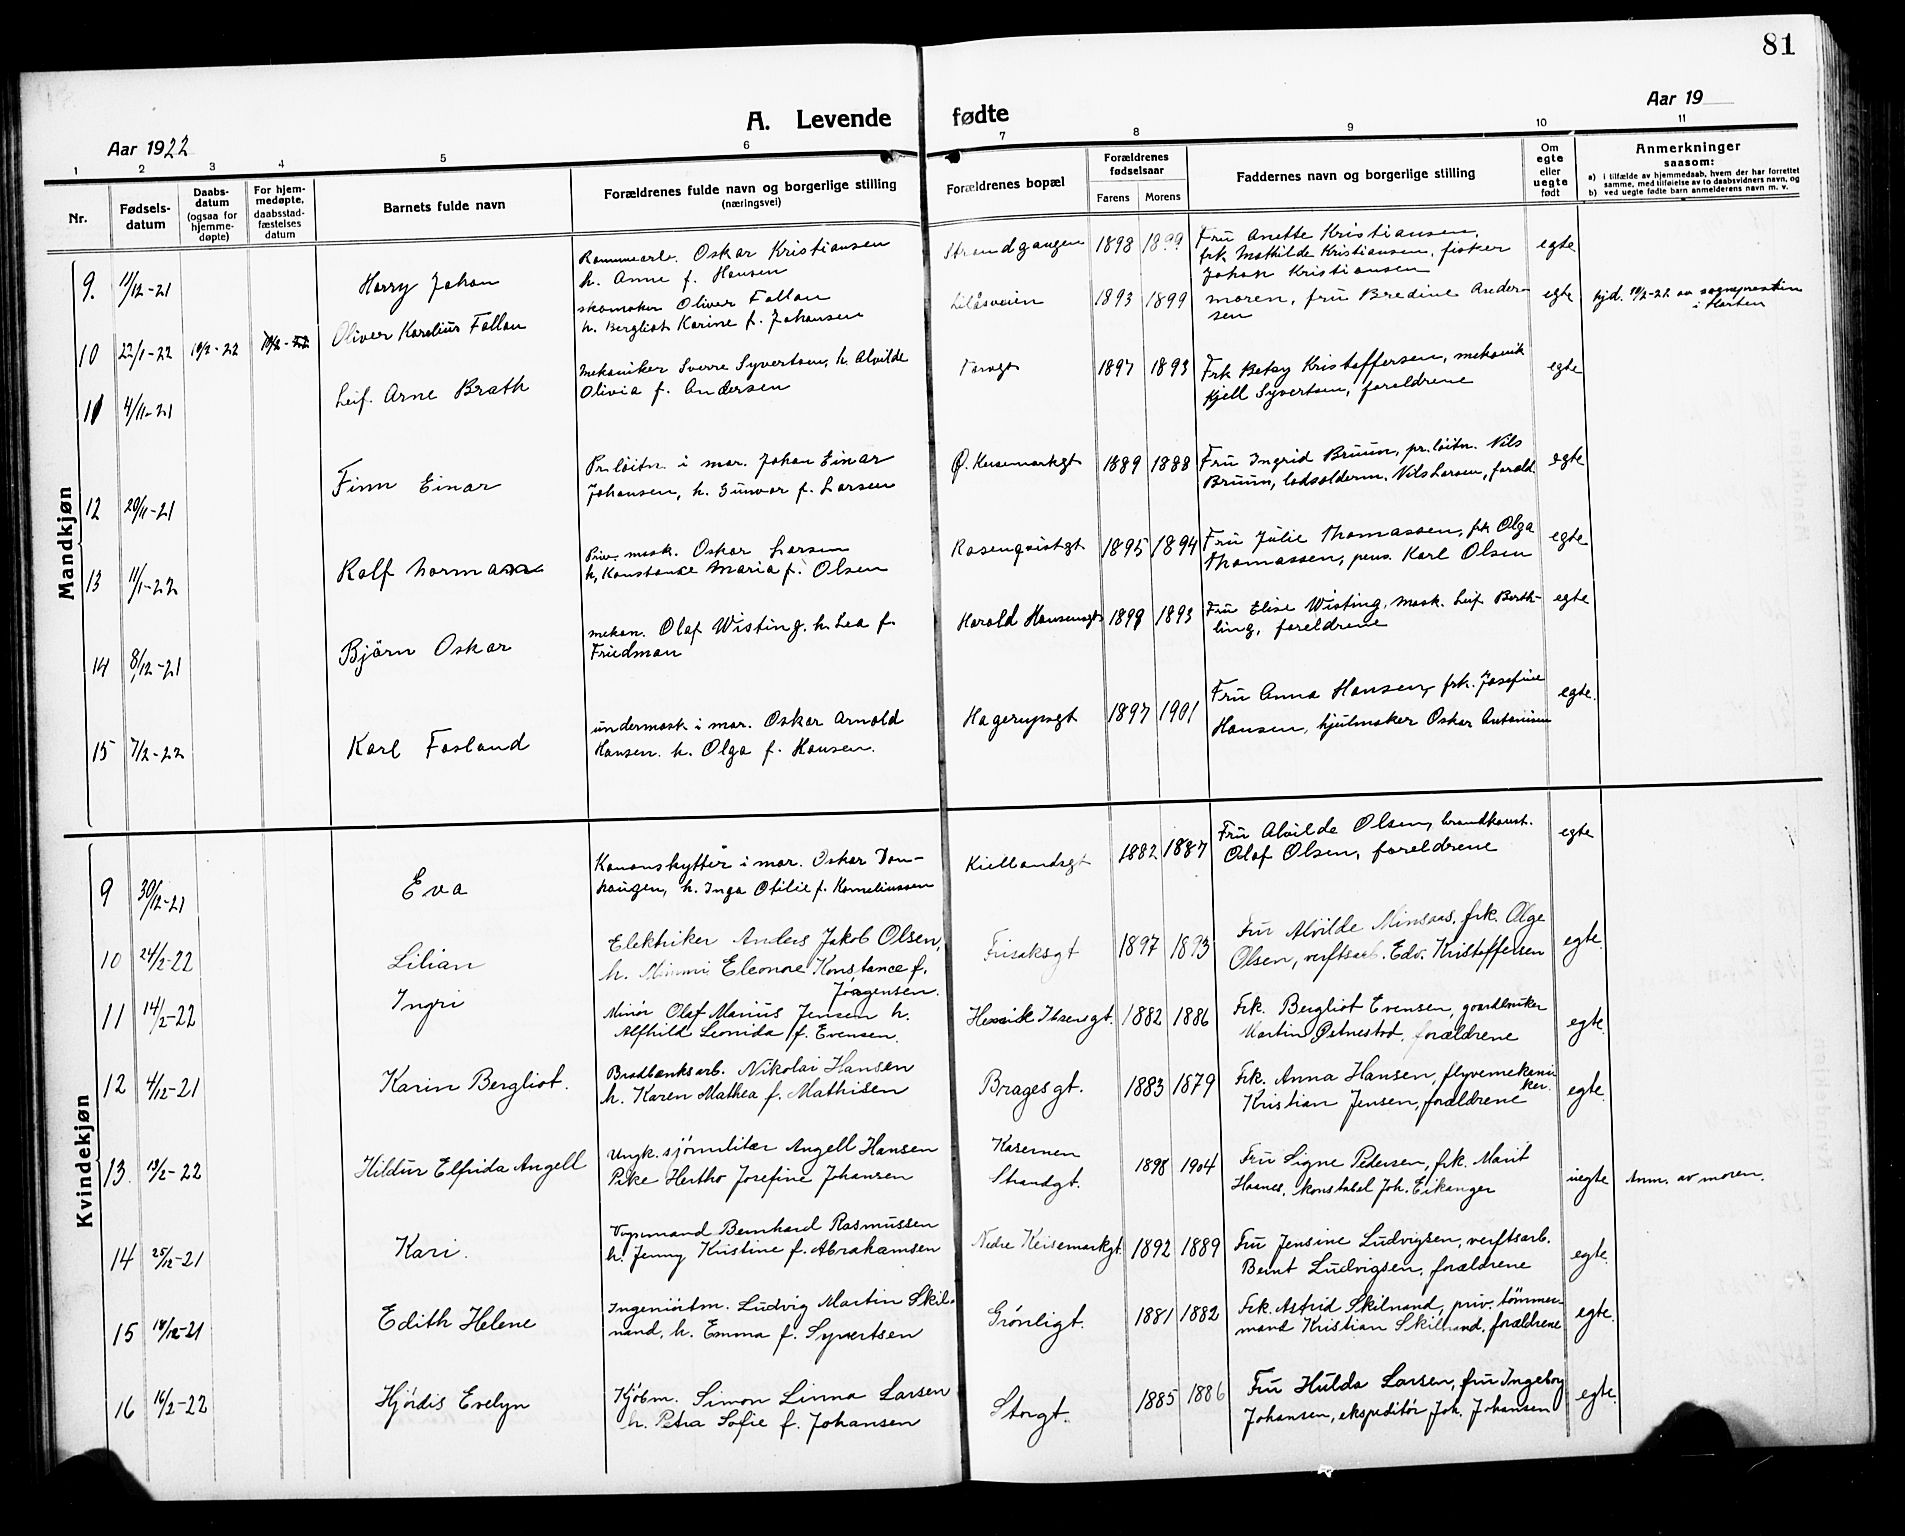 81
A. Levende fødte
Aar 1922
Aar 19
1 2 3 4 5 6 7 8 9 10 11
Nr.
Fødsels-
datum
Daabs-
datum
(ogsaa for
hjemme-
døpte)
For hjem-
medøpte,
daabsstad-
fæstelses
datum
Barnets fulde navn
Forældrenes fulde navn og borgerlige stilling
(næringsvei)
Forældrenes bopæl
Forældrenes
fødselsaar
Farens Morens
Faddernes navn og borgerlige stilling
Om
egte
eller
uegte
født
Anmerkninger
saasom:
a) i tilfælde av hjemmedaab, hvem der har forrettet
samme, med tilføielse av to daabsvidners navn, og
b) ved uegte fødte barn anmelderens navn m. v.
Mandkjøn
9. 11/12-21 Harry Johan
Oskar Kristiansen
h. Anne f. Hansen
Strandgangen 1898 1899
Fru Anette Kristiansen,
frk Mathilde Kristiansen, fisker
Johan Kristiansen
egte
10 22/1-22 10/2-22 Oliver Karelius Fallan
skomaker Oliver Fallan
h. Bergliot Karine f. Johansen
Lilásveien 1893 1899
moren, fru Bredine Ander-
sen
egte
hjd. av sognepresten
i Horten
11 4/11-21 Leif. Arne Brath
Mekaniker Sverre Syvertsen, h. Alvilde
Olivia f. Andersen
1897 1893
Frk Betsy Kristoffersen, mekanik
Kjell Syvertsen, forældrene
egte
12 20/11-21 Finn Einar
Pr. løitn. i mar. Johan Einar
Johansen, h. Gunvor f. Larsen
Ø. Keisemarkgt 1889 1888
Fru Ingrid Bruun, pr. løitn. Nils
Bruun, lodsolderm. Nils Larsen, foræld.
egte
13 11/1-22 Rolf Norman
mask. Oskar Larsen
h, Konstance Maria f. Olsen
Rosenqvistgt 1895 1894
Fru Julie Thomassen, frk Olga
Thomassen, pens. Karl Olsen
egte
14 8/12-21 Björn Oskar
mekan. Olaf Wisting, h. Lea f.
Friedman
Harald Hansensgt 1899 1893
Fru Elise Wisting, mask. Leif Berth-
ling, foreldrene
egte
15 7/2-22 Karl Fasland
undermask i mar. Oskar Arnold
Hansen. h. Olga f. Hansen.
Hagerupsgt 1897 1901
Fru Anna Hansen, frk. Josefine
Hansen, hjulmaker Oskar Antonisen
egte.
Kvindekjøn
9 30/12-21 Eva
Kanonskytter i mar. Oskar Don-
haugen, h. Inga Otilie f. Korneliussen
Kiellandsgt 1882 1887
Fru Alvilde Olsen, brandkonst.
Olaf Olsen, foreldrene
egte
10 24/2-22 Lilian
Elektriker Anders Jakob Olsen,
h. Mimmi Eleonore Konstance f.
Jörgensen.
Frisaksgt 1897 1893
Fru Alvilde Minsaas, frk. Olge
Olsen, verftsarb. Edv. Kristoffersen
egte.
11 14/2-22 Ingri
Minör Olaf Marius Jensen h.
Alfhild Leonida f. Evensen.
Henrik Ibsensgt. 1882 1886
Frk. Bergliot Evensen, gaardbruker
Martin Østnestad, forældrene
egte.
12 4/12-21 Karin Bergliot.
Bradbænksarb. Nikolai Hansen
h. Karen Mathea f. Mathisen
Bragesgt. 1883 1879
Frk. Anna Hansen, flyvemekani-
ker.
Kristian Jensen, forældrene
egte.
13 19/2-22 Hildur Elfrida Angell
Ungk. sjömilitær Angell Hansen
Pike Hertha Josefine Johansen
Kasernen
Strandgt.
1898 1904
Fru Signe Pedersen, frk. Marit
Haanes, konstabel Joh. Eikanger
uegte Anm. av moren.
14 25/12-21 Kari.
Vognmand Bernhard Rasmussen
h. Jenny Kristine f. Abrahamsen
Nedre Keisemarkgt. 1892 1889
Fru Jensine Ludvigsen, verftsarb.
Bernt Ludvigsen, forældrene
egte.
15 18/12-21 Edith Helene
Ingeniörtm. Ludvig Martin Skil-
nand, h. Emma f. Syvertsen
Grönligt. 1881 1882
Frk. Astrid Skilnand, priv. tömmer-
mand Kristian Skilnand, forældrene
egte.
16 16/2-22 Hjördis Evelyn
Kjöbm. Simon Linna Larsen
h. Petra Sofie f. Johansen
Storgt. 1885 1886
Fru Hulda Larsen, fru Ingeborg
Johansen, ekspeditör Joh. Johansen
egte.